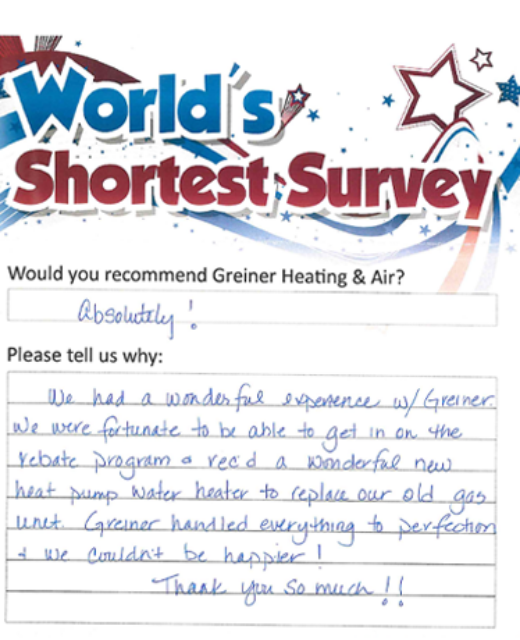 World's
Shortest Survey
Would you recommend Greiner Heating & Air?
Absolutely!
Please tell us why:
We had a wonderful experience w/ Greiner.
We were fortunate to be able to get in on the
rebate program & rec'd a wonderful new
heat pump water heater to replace our old gas
unit. Greiner handled everything to perfection
& we couldn't be happier!
Thank you so much!!